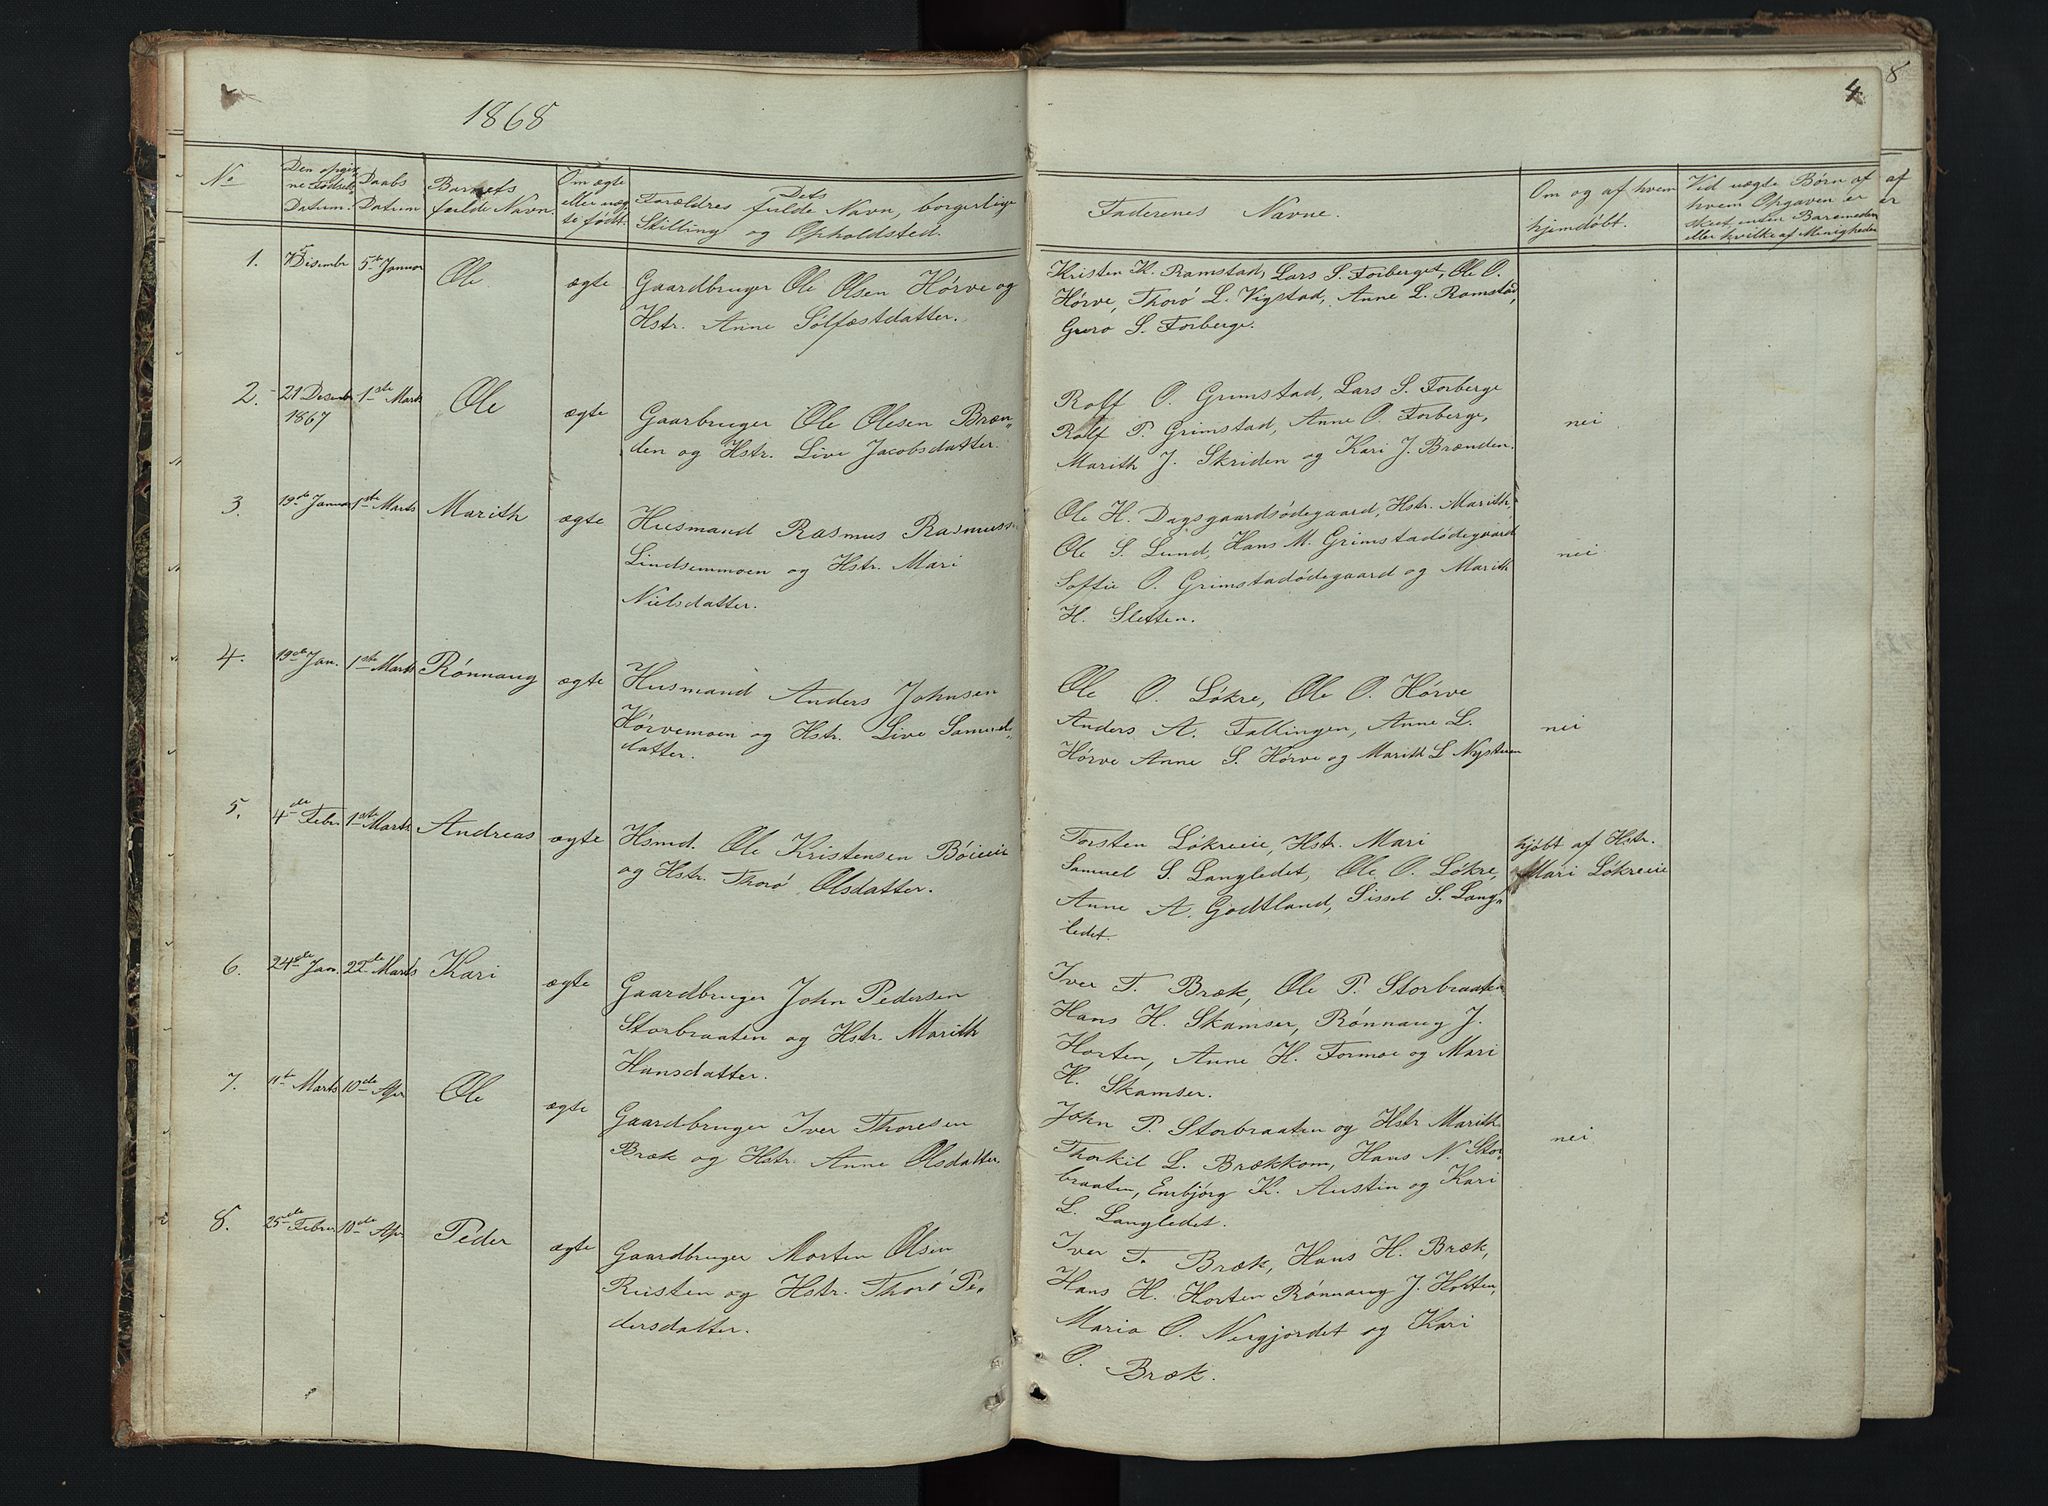 1868
4
8
No
Den opgiv
ne Fødsels
Datum.
Daabs
Datum
Barnets
fulde Navn.
Om ægte
eller uæg
te født.
Dets
Forældres fulde Navn, borgerlige
Stilling og Opholdsted.
Faderenes Navne.
Om og af hvem
hjemdøbt.
Vid uægte Børn af
hvem Opgaven er
skeet, enten Barnemoderen
eller hvilke af Menigheden
af
er
1. 7de Disembr 5te Januar Ole ægte
Gaardbruger Ole Olsen Hørve og
Hstr. Anne Sølfæstdatter.
Kristen K. Ramstad, Lars S. Forberget, Ole O.
Hørve, Thorø L. Vigstad, Anne L. Ramstad,
Guro S. Forberge.
2. 21 Desembr 1ste Marts Ole ægte
1867
Gaarbruger Ole Olesen Bræn
den og Hstr. Live Jacobsdatter.
Rolf O. Grimstad, Lars S. Forberge
Rolf P. Grimstad, Anne O. Forberge,
Marith J. Skriden og Kari J. Brænden.
nei
3. 19de Januar 1ste Marts Marith ægte
Husmand Rasmus Rasmuss
Lindsemmoen og Hstr. Mari
Nielsdatter.
Ole H. Dagsgaardsødegaard, Hstr. Marith,
Ole S. Lund, Hans M. Grimstadødegaard
Soffie O. Grimstadødegaard og Marith
H. Sletten.
nei
4. 19de Jan. 1ste Marts Rønnaug ægte
Husmand Anders Johnsen
Hørvemoen og Hstr. Live Samuels
datter.
Ole O. Løkre, Ole O. Hørve
Anders A. Fallingen, Anne L.
Hørve Anne S. Hørve og Marith L Nystuen
nei
5. 4de Febr 1ste Marts Andreas ægte
Hsmd. Ole Kristensen Bøieeie
og Hstr. Thorø Olsdatter.
Torsten Løkreeie, Hstr. Mari
Samuel S. Langledet, Ole O. Løkre,
Anne A. Godtland, Sissel S. Lang
ledet.
hjøbt af Hstr.
Mari Løkreeie
6. 24de Jan. 22de Marts Kari ægte
Gaardbruger John Pedersen
Storbraaten og Hstr. Marith
Hansdatter.
Iver T. Bræk, Ole P. Storbraaten
Hans H. Skamser, Rønnaug J.
Horten, Anne H. Formoe og Mari
H. Skamser.
7. 11te Marts 10de Apr Ole ægte
Gaardbruger Iver Thoresen
Bræk og Hstr. Anne Olsdatter,
John P. Storbraaten og Hstr Marith
Thorkil L. Brækkom, Hans N. Stor
braaten, Embjørg K. Austin og Kari
L. Langledet.
nei
8. 25de Febr 10de Apr Peder ægte
Gaardbruger Morten Olsen
Rusten og Hstr. Thorø Pe
dersdatter.
Iver T. Bræk, Hans H. Bræk,
Hans H. Horten Rønnaug J. Horten,
Maria O. Nergjordet og Kari
O. Bræk.